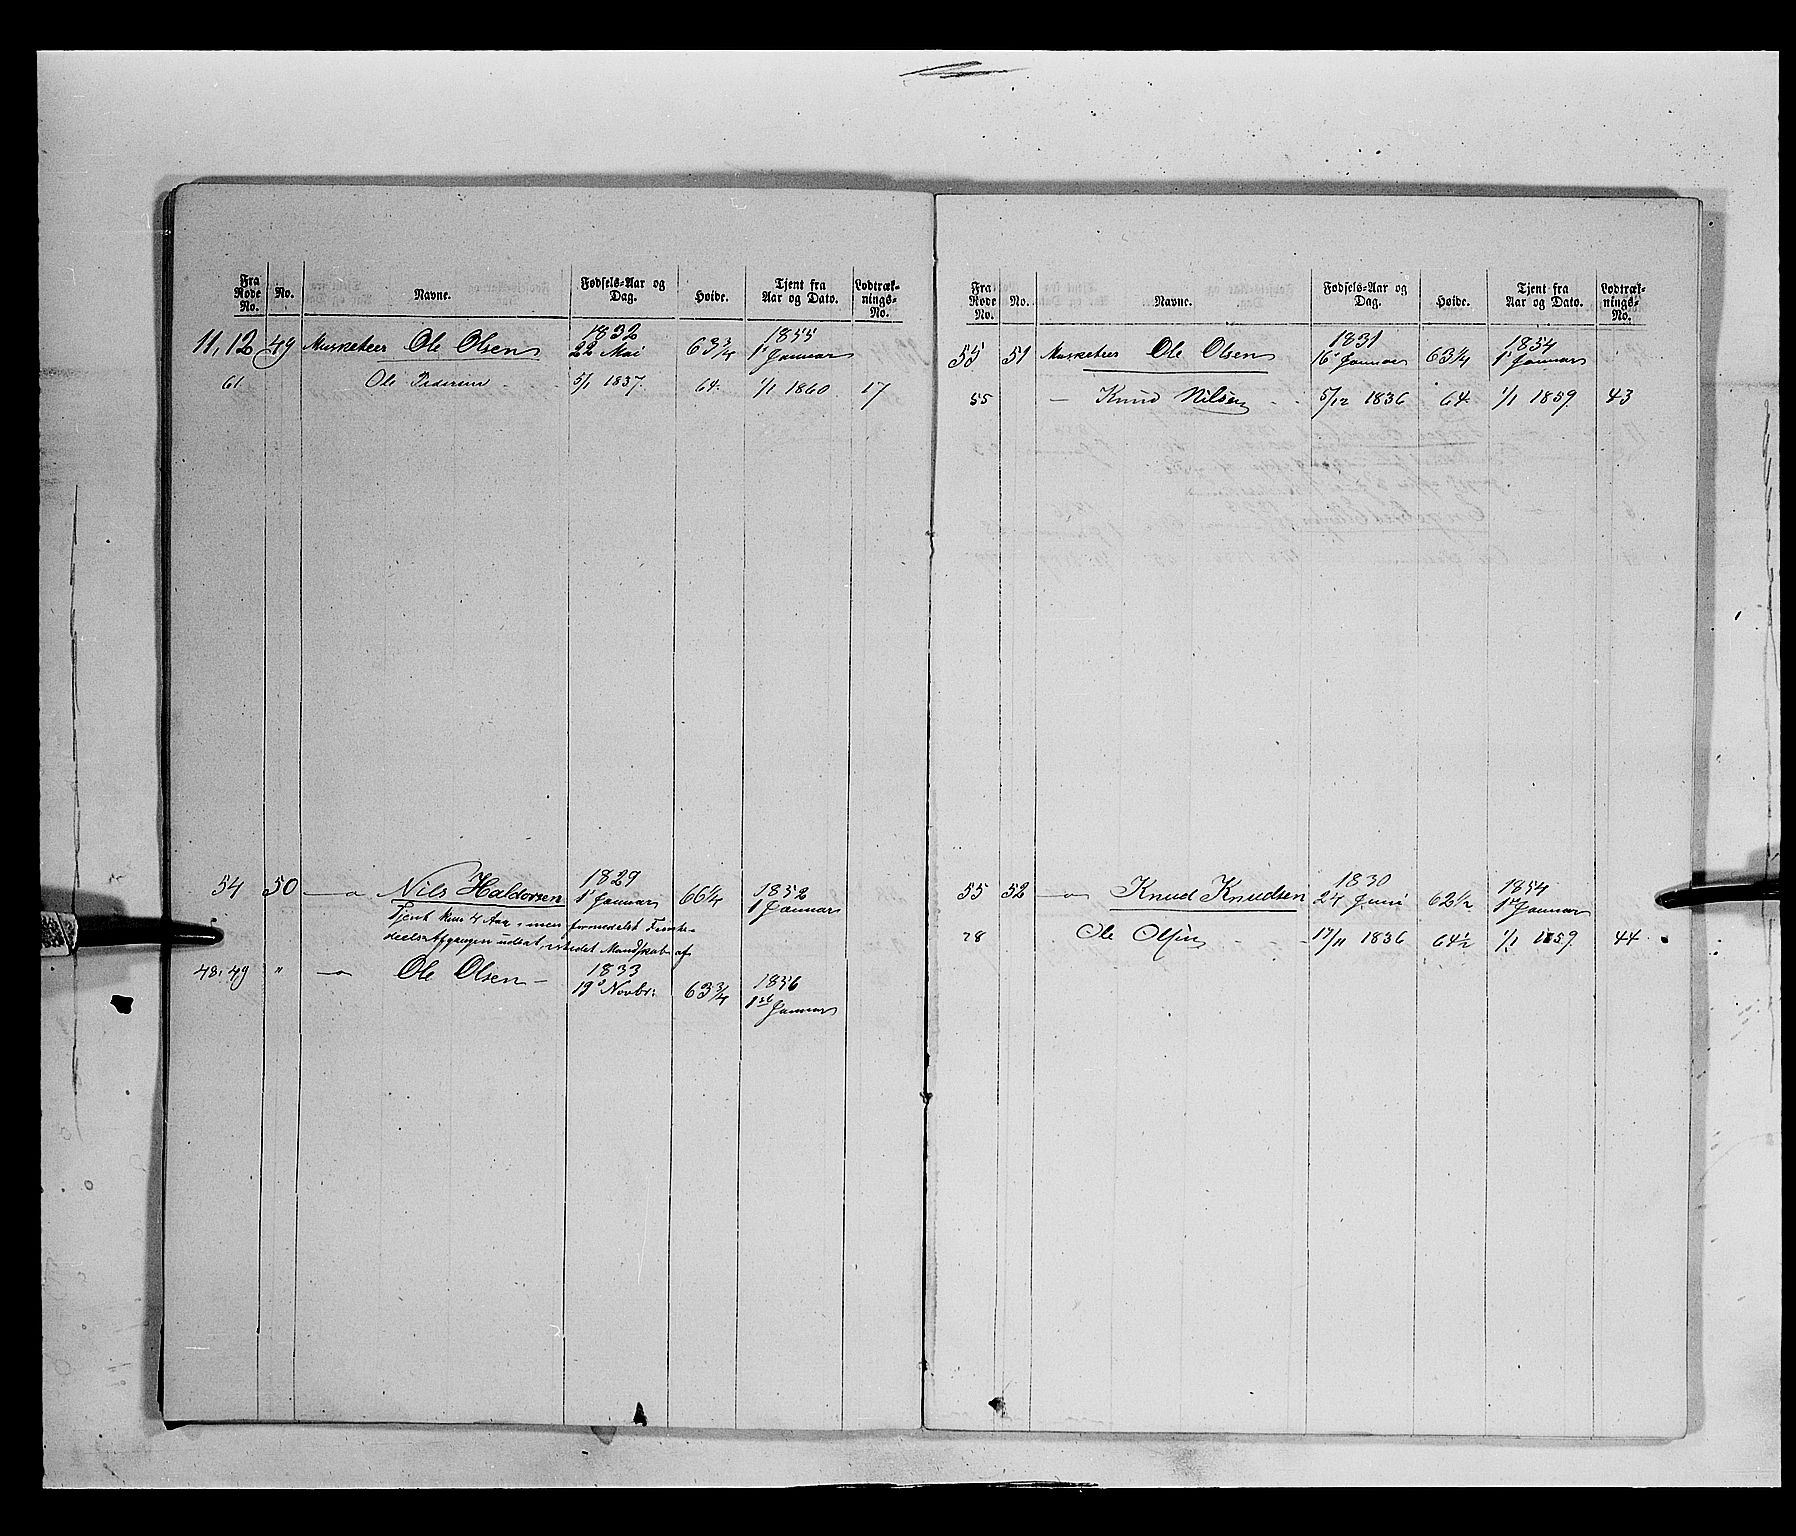 Fra Rode No. | No. | Navne. | Fødsels-Aar og Dag. | Høide. | Tjent fra Aar og Dato. | Lodtræk-nings-No.
11, 12 | 49 | Musketeer Ole Olsen | 1832 22 Mai | 63 3/4 | 1855 1 Januar
61 | Ole Pedersen | 5/1 1837. | 64. | 1/1 1860. | 17
54 | 50 | —"— Nils Haldorsen | 1829 1 Januar | 66 1/4 | 1852 1 Januar
Tjent kun 4 Aar, men formedelst
deels Afgangen udsat, Mandskab af
48, 49 | " | —"— Ole Olsen – | 1833 19 Novbr: | 63 3/4 | 1856 1ste Januar
Fra Rode No. | No. | Navne. | Fødsels-Aar og Dag. | Høide. | Tjent fra Aar og Dato. | Lodtræk-nings-No.
55 | 51 | Musketeer Ole Olsen | 1831 16 Januar | 63 1/4 | 1854 1 Januar
55 | – Knud Nilsen | 5/12 1836 | 64. | 1/1 1859. | 43
55 | 52 | —"— Knud Knudsen | 1830 24 Juni | 62 1/2 | 1854 1 Januar
28 | Ole Olsen | 17/11 1836 | 64 1/2 | 1/1 1859. | 44